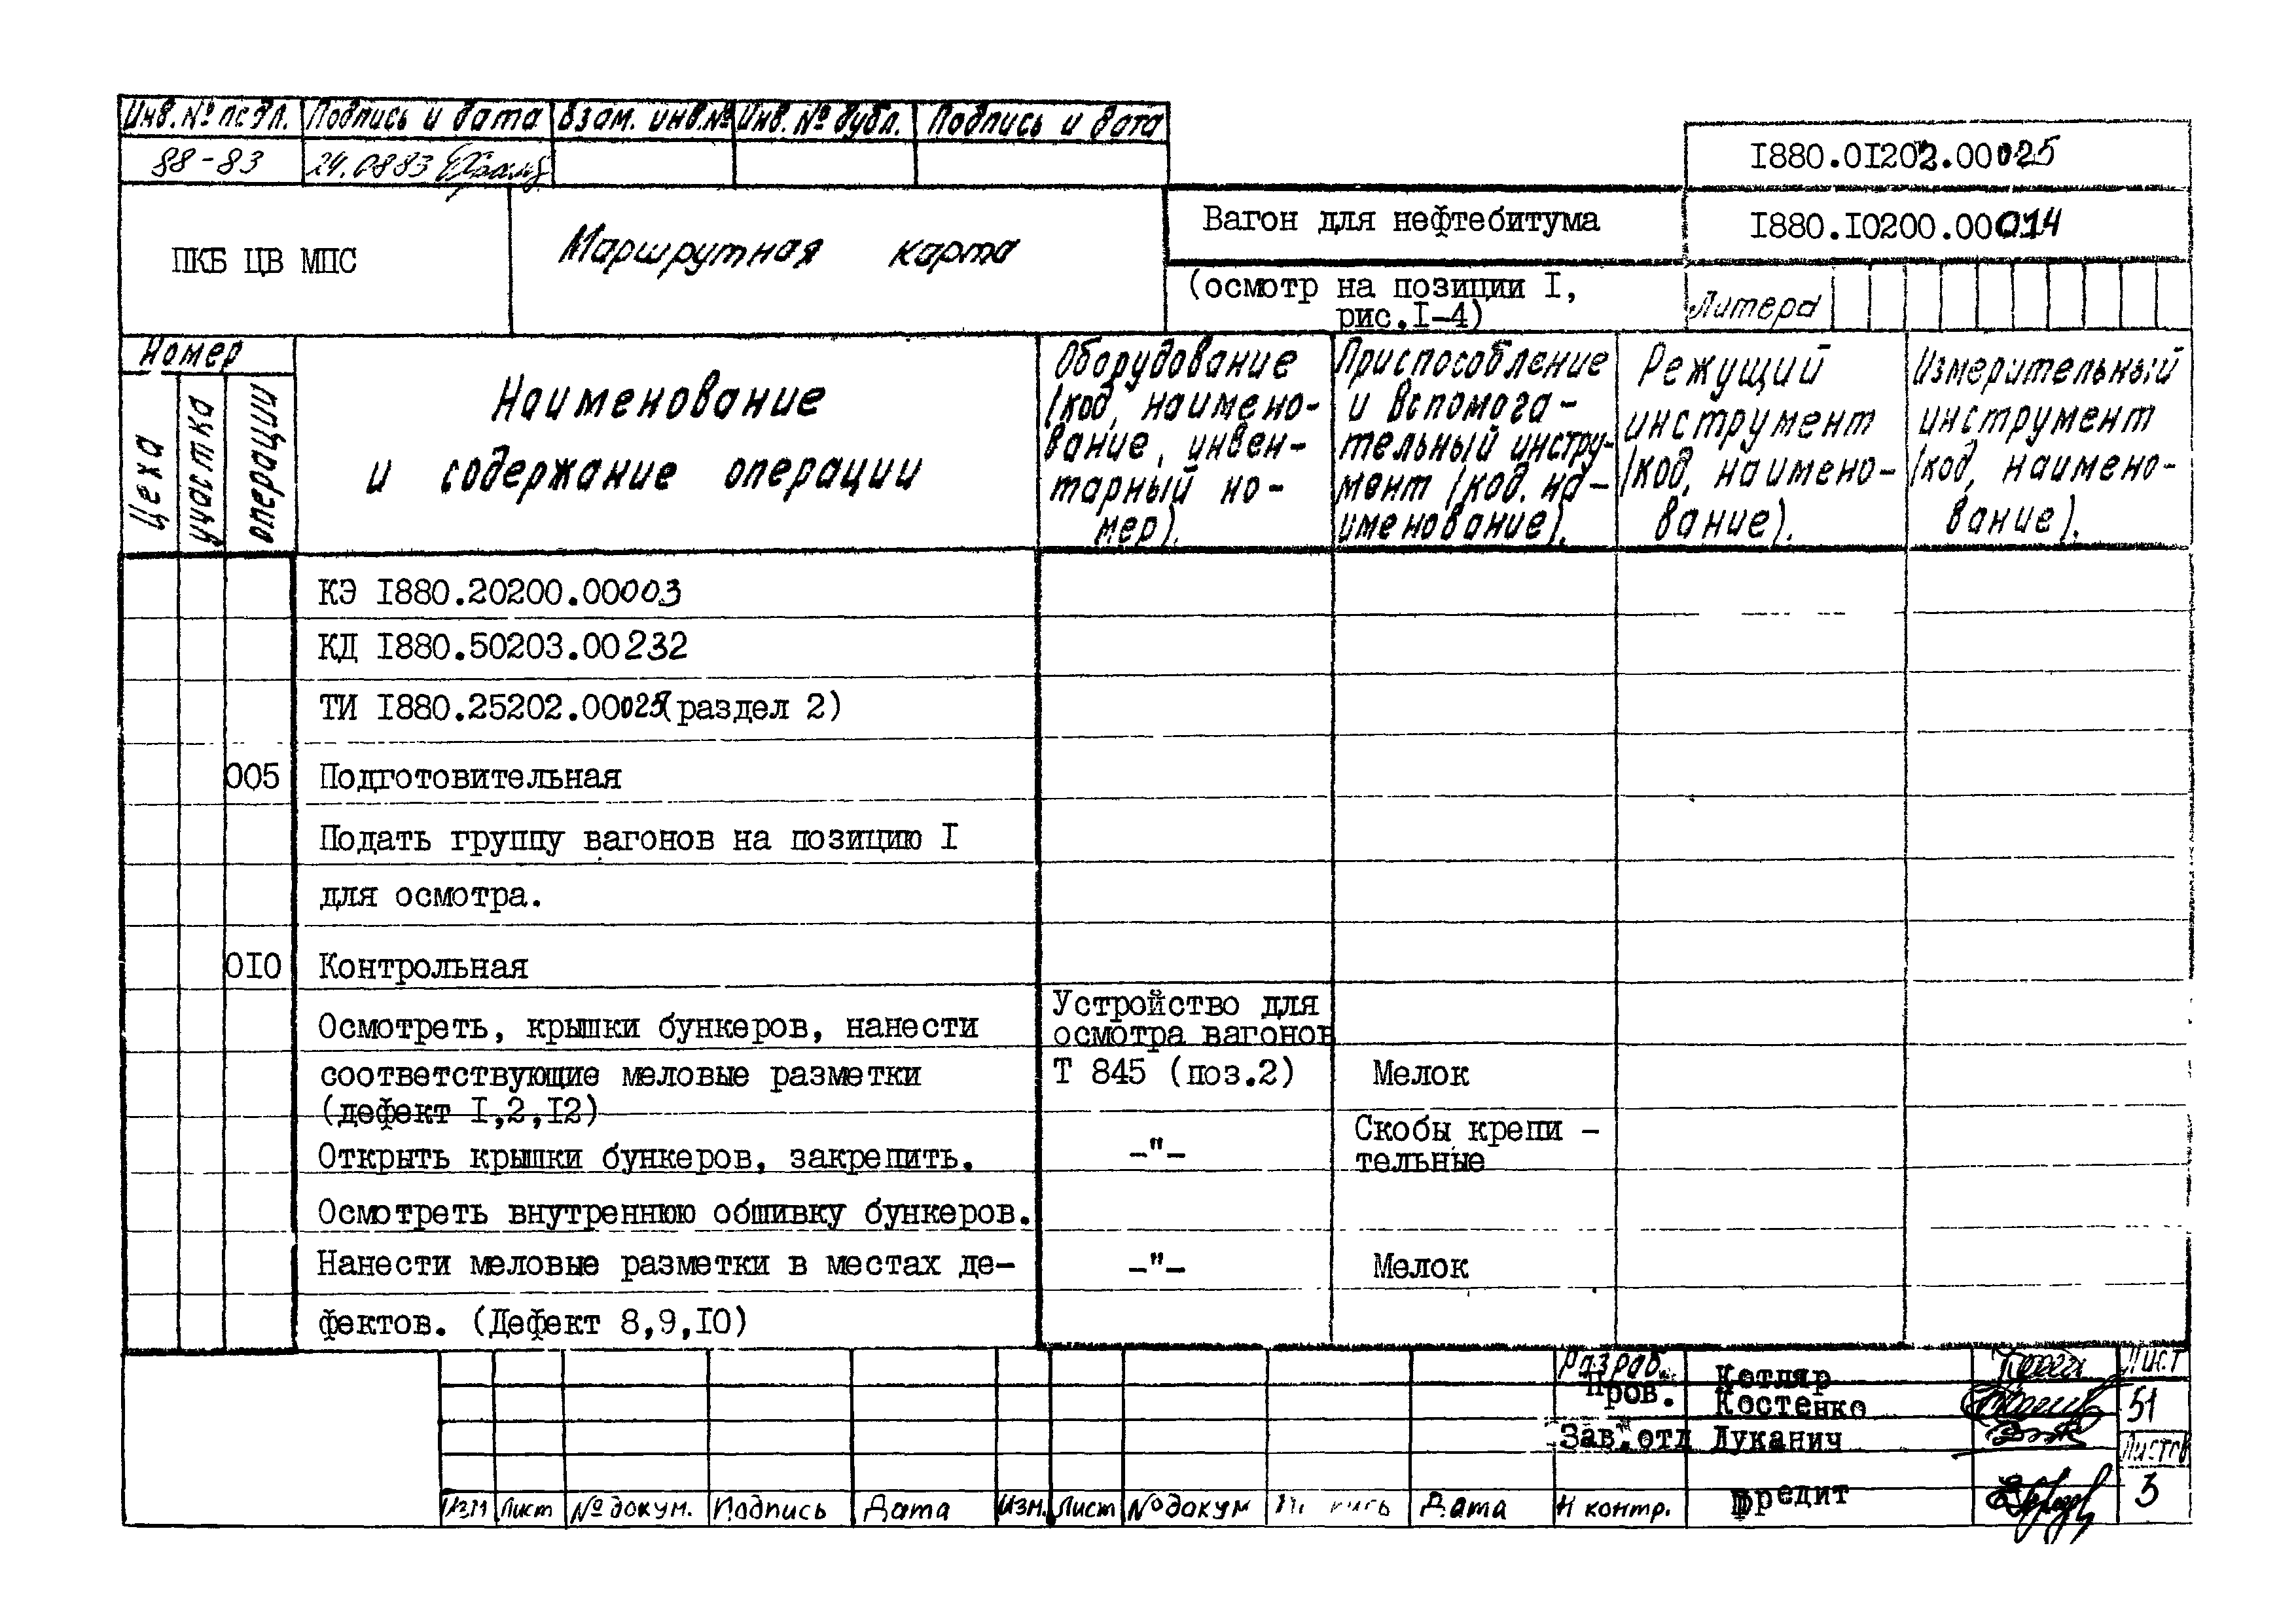 Инв. № подл. Подпись и дата Взам. инв.№ Инв. № дубл. Подпись и дата
88-83 24.0883
I880.0I202.00025
ПКБ ЦВ МПС Маршрутная карта Вагон для нефтебитума I880.I0200.00014
(осмотр на позиции I,
рис.I-4)
Литера
Номер
Цеха
участка
операции
Наименование
и содержание операции
Оборудование
/код, наимено-
вание, инвен-
тарный но-
мер).
Приспособление
и вспомога-
тельный инстру-
мент /код. на-
именование).
Режущий
инструмент
/код, наимено-
вание).
Измерительный
инструмент
/код, наимено-
вание).
КЭ I880.20200.00003
КД I880.50203.00232
ТИ I880.25202.00025(раздел 2)
005 Подготовительная
Подать группу вагонов на позицию I
для осмотра.
0I0 Контрольная
Осмотреть, крышки бункеров, нанести
Устройство для
осмотра вагонов
соответствующие меловые разметки Т 845 (поз.2) Мелок
(дефект I,2,I2)
Открыть крышки бункеров, закрепить. -"- Скобы крепи -
тельные
Осмотреть внутреннюю обшивку бункеров.
Нанести меловые разметки в местах де- -"- Мелок
фектов. (Дефект 8,9,I0)
Разраб. Котляр Лист
Пров. Костенко 51
Зав.отд Луканич Листов
Изм Лист № докум. Подпись Дата Изм. Лист № докум Дата Н контр. Фредит 3